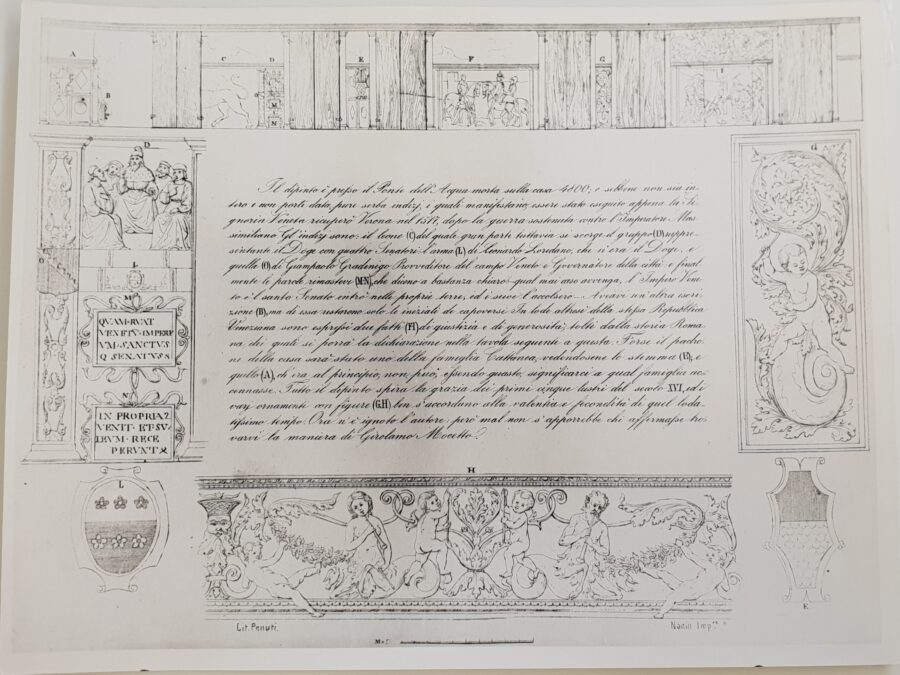 A
B
C
D
M
M
E
F
G
I
D
G
O
L
M
QVAM·RVAT
VENETV·IMPERI
VM·SANCTVS
Q SENATVS
N
IN PROPRIA
VENIT·ET SV
RECE
PERVNT
Il dipinto è presso il Ponte dell'Acqua morta sulla casa 4800; e sebbene non sia in-
tero e non porti data, pure serba indizj, i quali manifestano, essere stato eseguito appena la Si-
gnoria Veneta ricuperò Verona nel 1517, dopo la guerra sostenuta contro l'Imperatore Mas
similiano. Gl'indizj sono: il leone (C) del quale gran parte tuttavia si scorge il gruppo (D) rappre-
sentante il Doge con quattro Senatori: l'arma (L) di Leonardo Loredano, che n'era il Doge, e
quella (O) di Giampaolo Gradinigo Provveditore del campo Veneto e Governatore della città: e final
mente le parole rimastevi (M·N), che dicono a bastanza chiaro: qual mai caso avvenga, l'Impero Vene-
to e'l santo Senato entrò nelle proprie terre, ed i suoi l'accolsero. Aveavi un'altra iscri-
zione (B), ma di essa restarono solo le iniziali di capoversi. In lode altresì della stessa Repubblica
Veneziana sono espressi due fatti (F·I) di giustizia e di generosità, tolti dalla storia Roma
na dei quali si porrà la dichiarazione nella tavola seguente a questa. Forse il padro-
ne della casa sarà stato uno della famiglia Cattanea, vedendosene lo stemma (E), e
quello (A), ch'era al principio, non può, essendo guasto, significarci a qual famiglia ac-
cennasse. Tutto il dipinto spira la grazia dei primi cinque lustri del secolo XVI, ed i
varj ornamenti con figure (G.H) ben s'accordano alla valentia e fecondità di quel loda-
tissimo tempo. Ora n'è ignoto l'autore, però mal non s'apporrebbe chi affermasse tro
varvi la maniera di Girolamo Mocetto.
H
L
E
Lit. Penuti.